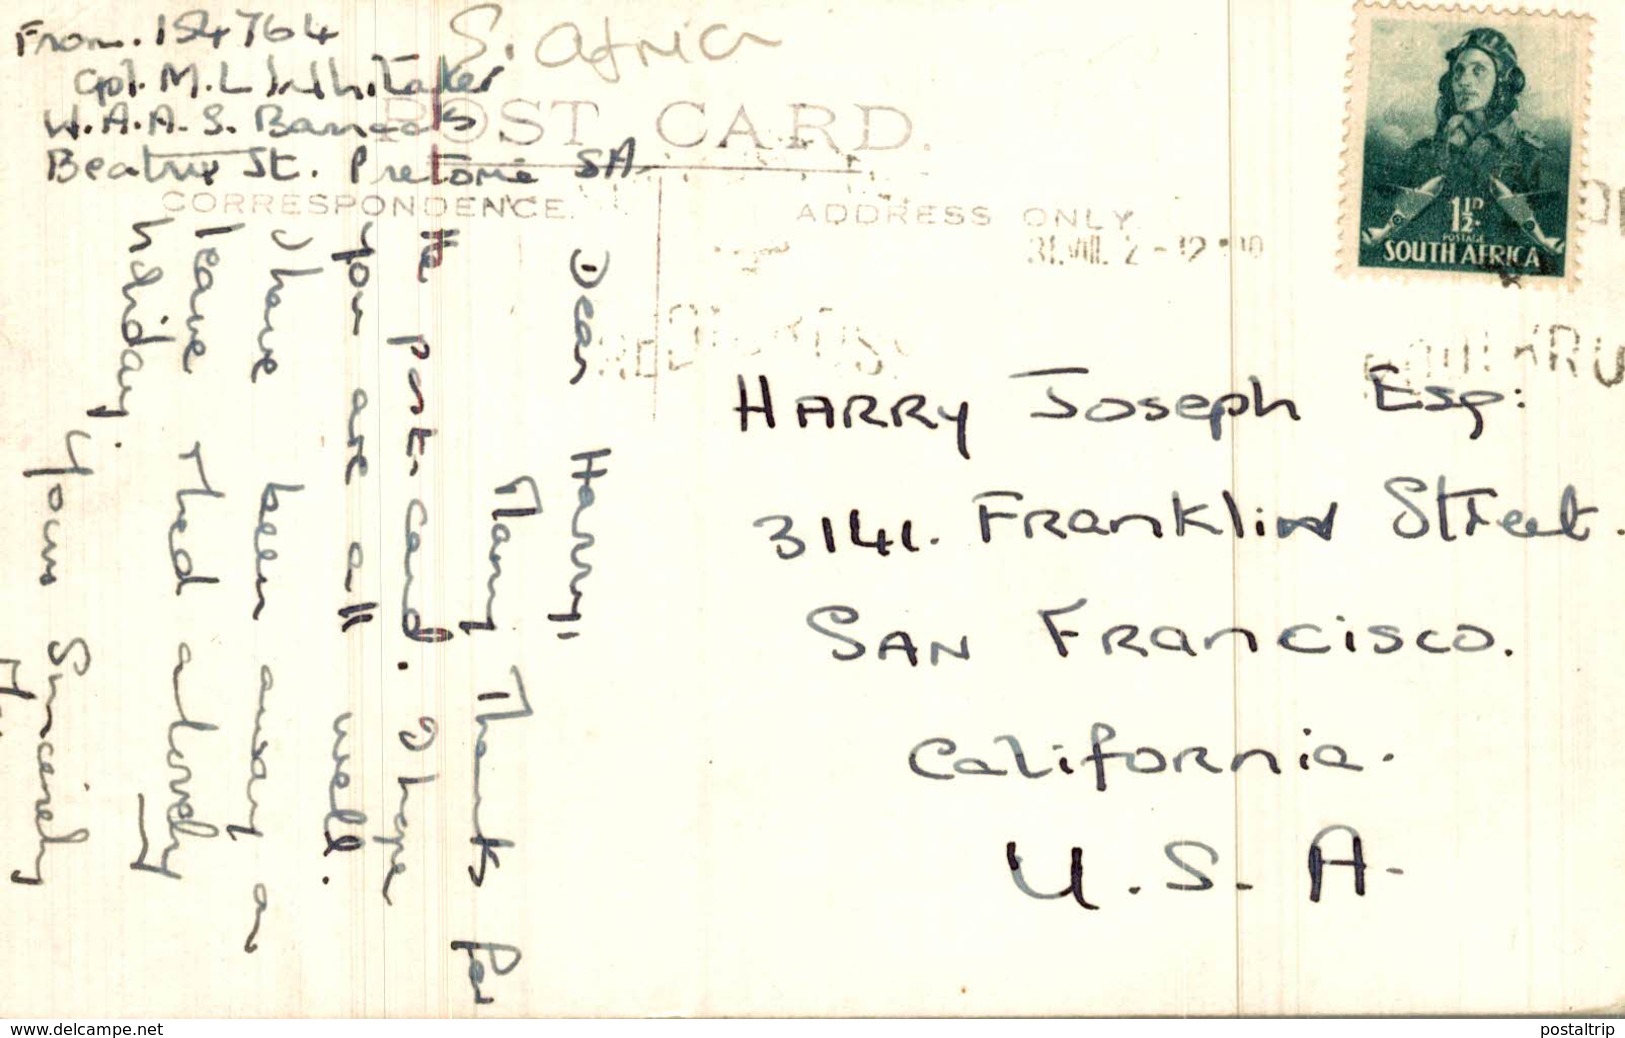 From. 154764
Cpl. M. L Whitaker
W.A.A.S. Barracks
Beatrix St. Pretoria SA
S. Africa
POST CARD.
CORRESPONDENCE.
ADDRESS ONLY.
1½D
POSTAGE
SOUTH AFRICA
HARRY Joseph Esq:
3141. Franklin Street.
San Francisco.
California.
U.S.A.
Dear Harry,
Many Thanks for
the post card. I hope
you are all well.
I have been away on
leave & had a lovely
holiday.
Yours Sincerely
www.delcampe.net
postaltrip